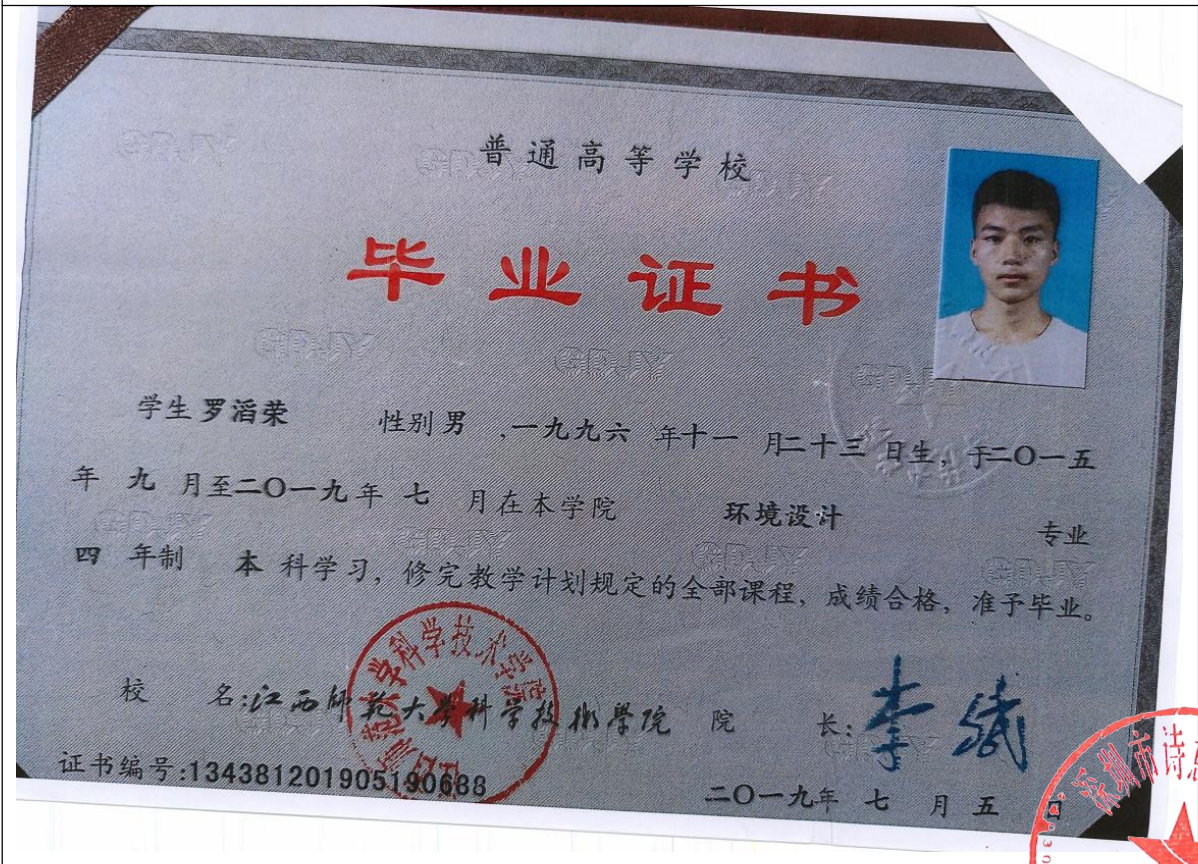 普通高等学校
毕业证书
学生 罗滔荣 性别 男 ,一九九六 年十一 月二十三 日生，于二〇一五
年 九 月至二〇一九年 七 月在本学院 环境设计 专业
四 年制 本 科学习，修完教学计划规定的全部课程，成绩合格，准予毕业。
校 名:江西师范大學科学技術學院 院 长:李斌
证书编号:134381201905190688
二〇一九年 七 月 五 日
深圳市诗